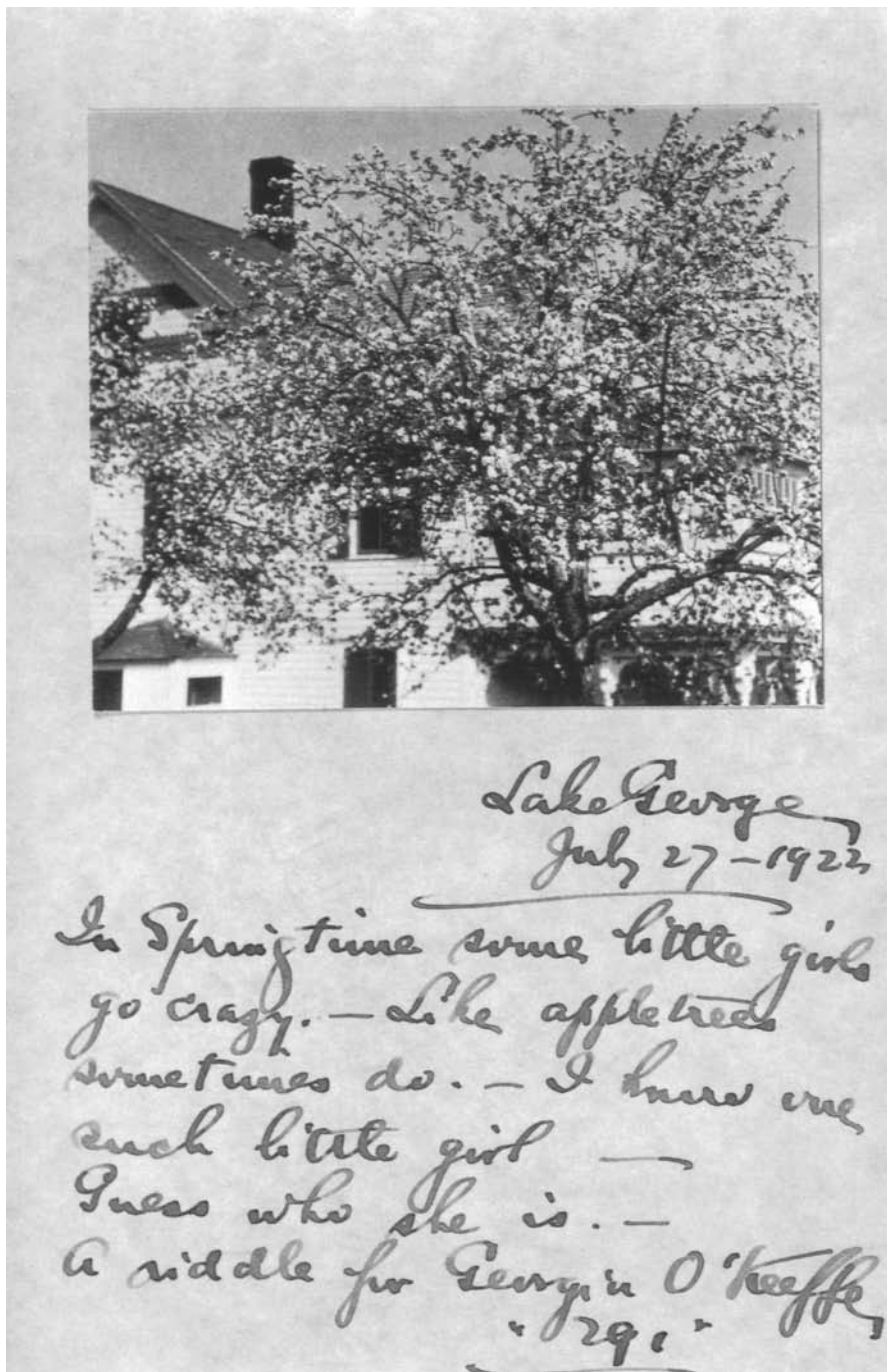 Lake George
July 27 – 1922
In Springtime some little girls
go crazy. – Like appletrees
sometimes do. – I know one
such little girl —
Guess who she is. –
A riddle for Georgia O'Keeffe
"291"